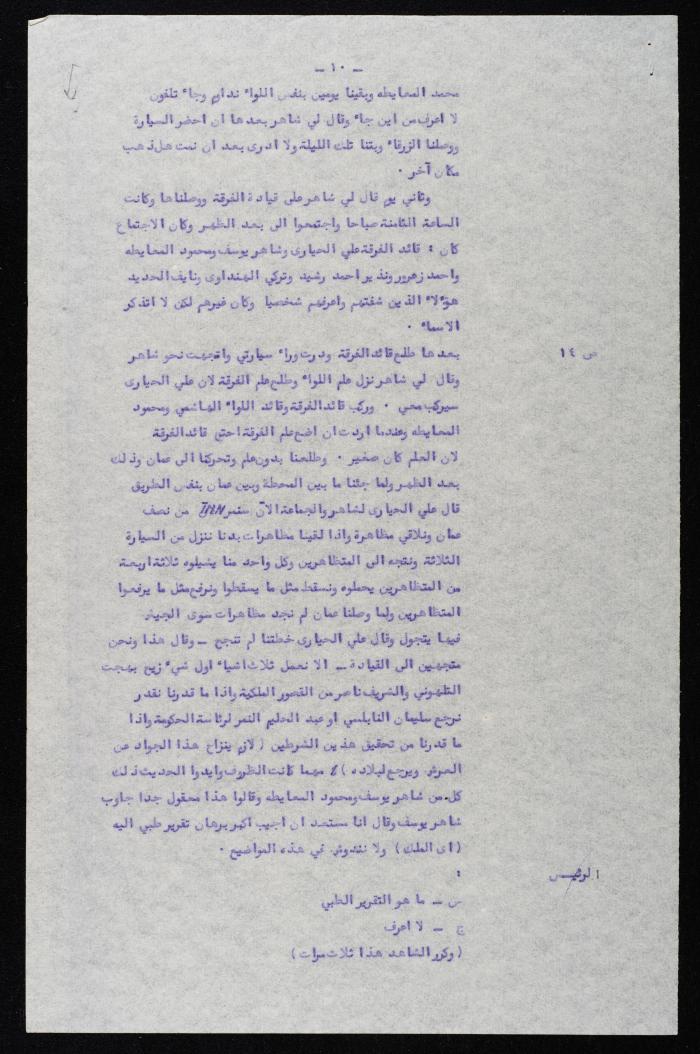 - ١٠ -
محمد المعايطه وبقينا يومين بنفس اللواء ندام وجاء تلفون
لا اعرف من اين جاء وقال لي شاهر بعدها ان احضر السيارة
ووصلنا الزرقاء وبتنا تلك الليلة ولا ادرى بعد ان نمت هل ذهب
مكان آخر ٠
وثاني يوم قال لي شاهر على قيادة الفرقة ووصلناها وكانت
الساعة الثامنة صباحا واجتمعوا الى بعد الظهر وكان الاجتماع
كان : قائد الفرقة علي الحيارى وشاهر يوسف ومحمود المعايطه
واحمد زعرور ونذير احمد رشيد وتركي الهنداوى ونايف الحديد
هؤلاء الذين شفتهم واعرفهم شخصيا وكان غيرهم لكن لا اتذكر
الاسماء ٠
بعدها طلع قائد الفرقة ودرت وراء سيارتي واتجهت نحو شاهر
ص ١٤
وقال لي شاهر نزل علم اللواء وطلع علم الفرقة لان علي الحيارى
سيركب معي ٠ وركب قائد الفرقة وقائد اللواء الهاشمي ومحمود
المعايطه وعندما اردت ان اضع علم الفرقة احتج قائد الفرقة
لان العلم كان صغير ٠ وطلعنا بدون علم وتحركنا الى عمان وذلك
بعد الظهر ولما جئنا ما بين المحطة وبين عمان بنفس الطريق
قال علي الحيارى لشاهر والجماعة الآن سنمر من نصف
عمان ونلاقي مظاهرة واذا لقينا مظاهرات بدنا ننزل من السيارة
الثلاثة ونتجه الى المتظاهرين وكل واحد منا يشيلوه ثلاثة اربعة
من المتظاهرين يحملوه ونسقط مثل ما يسقطوا ونرفع مثل ما يرفعوا
المتظاهرين ولما وصلنا عمان لم نجد مظاهرات سوى الجيش
فيها يتجول وقال علي الحيارى خطتنا لم تنجح - وقال هذا ونحن
متجهين الى القيادة - الا نعمل ثلاث اشياء اول شيء زيح بهجت
التلهوني والشريف ناصر من القصور الملكية واذا ما قدرنا نقدر
نرجع سليمان النابلسي او عبد الحليم النمر لرئاسة الحكومة واذا
ما قدرنا من تحقيق هذين الشرطين ( لازم ينزاح هذا الجواد عن
العرش ويرجع لبلاده ) مهما كانت الظروف وايدوا الحديث ذلك
كل من شاهر يوسف ومحمود المعايطه وقالوا هذا معقول جدا جاوب
شاهر يوسف وقال انا مستعد ان اجيب اكبر برهان تقرير طبي اليه
( اى الملك ) ولا في هذه المواضيع ٠
الرئيس :
س - ما هو التقرير الطبي
ج - لا اعرف
( وكرر الشاهد هذا ثلاث مرات )